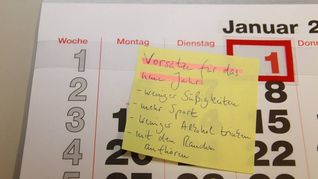 Januar 2
Woche Montag Dienstag
1 1
2
3
4
5
Vorsätze für das
neue Jahr:
- weniger Süßigkeiten
- mehr Sport
- weniger Alkohol trinken
- mit dem Rauchen
aufhören